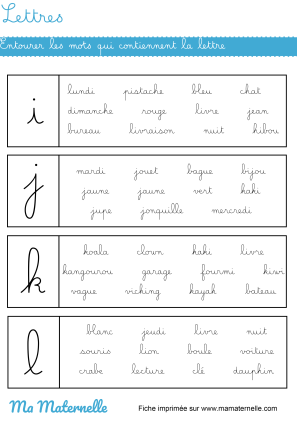 Lettres
Entourer les mots qui contiennent la lettre
i
lundi pistache bleu chat
dimanche rouge livre jean
bureau livraison nuit hibou
j
mardi jouet bague bijou
jaune jaune vert kaki
jupe jonquille mercredi
k
koala clown kaki livre
kangourou garage fourmi kiwi
vague viching kayak bateau
l
blanc jeudi livre nuit
souris lion boule voiture
crabe lecture clé dauphin
Ma Maternelle
Fiche imprimée sur www.mamaternelle.com